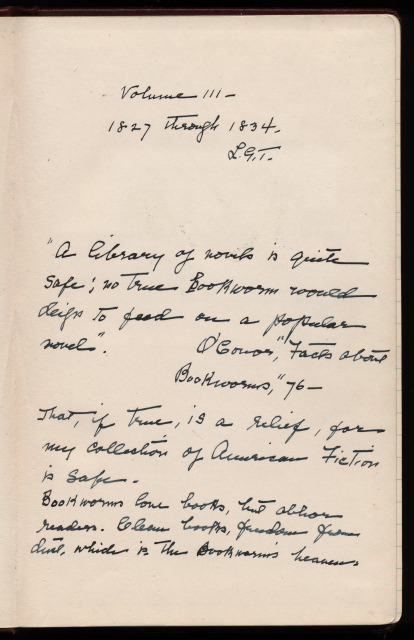 Volume III-
1827 through 1834.
"A library of novels is quite
safe; no true Bookworm would
deign to feed on a popular
novel".
O'Conor, "Facts about
Bookworms," 76-
That, if true, is a relief, for
my collection of American Fiction
is safe.
Bookworms love books, but abhor
readers. Clean books, freedom from
dust, which is the Bookworm's heaven.